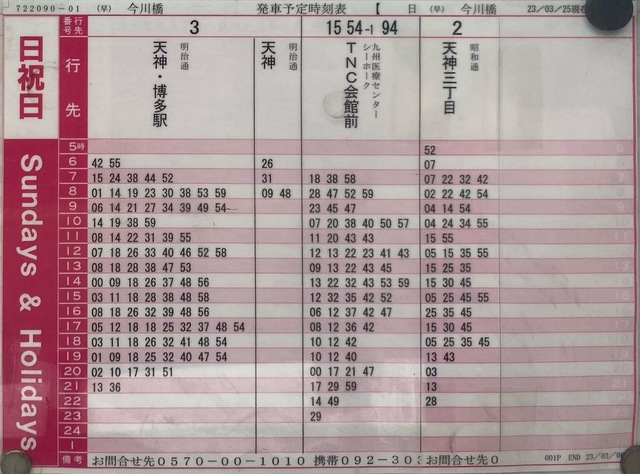 722090-01 (早) 今川橋 発車予定時刻表 【 日 (早) 今川橋 23/03/25現在
日祝日
Sundays & Holidays
番号 行先 3 15 54-1 94 2
行先 明治通 天神・博多駅 明治通 天神 九州医療センター シーホーク TNC会館前 昭和通 天神三丁目
5時 52
6 42 55 26 07
7 15 24 38 44 52 31 18 38 58 07 22 32 42
8 01 14 19 23 30 38 53 59 09 48 28 47 52 59 02 22 42 54
9 06 14 21 27 34 39 49 54 23 45 47 04 14 54
10 14 19 38 59 07 20 38 40 50 57 04 24 34 55
11 08 14 22 31 39 55 11 20 43 43 15 55
12 07 18 26 33 40 46 52 58 12 13 22 23 41 43 05 15 35 55
13 08 18 28 38 47 53 09 13 22 43 45 15 25 35
14 00 09 18 26 37 48 56 13 22 32 43 53 59 15 30 45
15 03 11 18 28 38 48 58 12 32 35 42 52 05 25 45 55
16 08 18 26 32 39 48 56 06 12 37 42 47 25 35 45
17 05 12 18 18 25 32 37 48 54 08 12 36 42 15 30 45
18 03 11 18 26 32 41 48 54 10 12 42 05 25 35 45
19 01 09 18 25 32 40 47 54 10 12 40 13 43
20 02 10 17 31 51 00 17 21 47 03
21 13 36 17 29 59 13
22 14 49 28
23 29
24
1
備考 お問合せ先0570-00-1010 携帯092-303 お問合せ先0 001P END 23/03/0